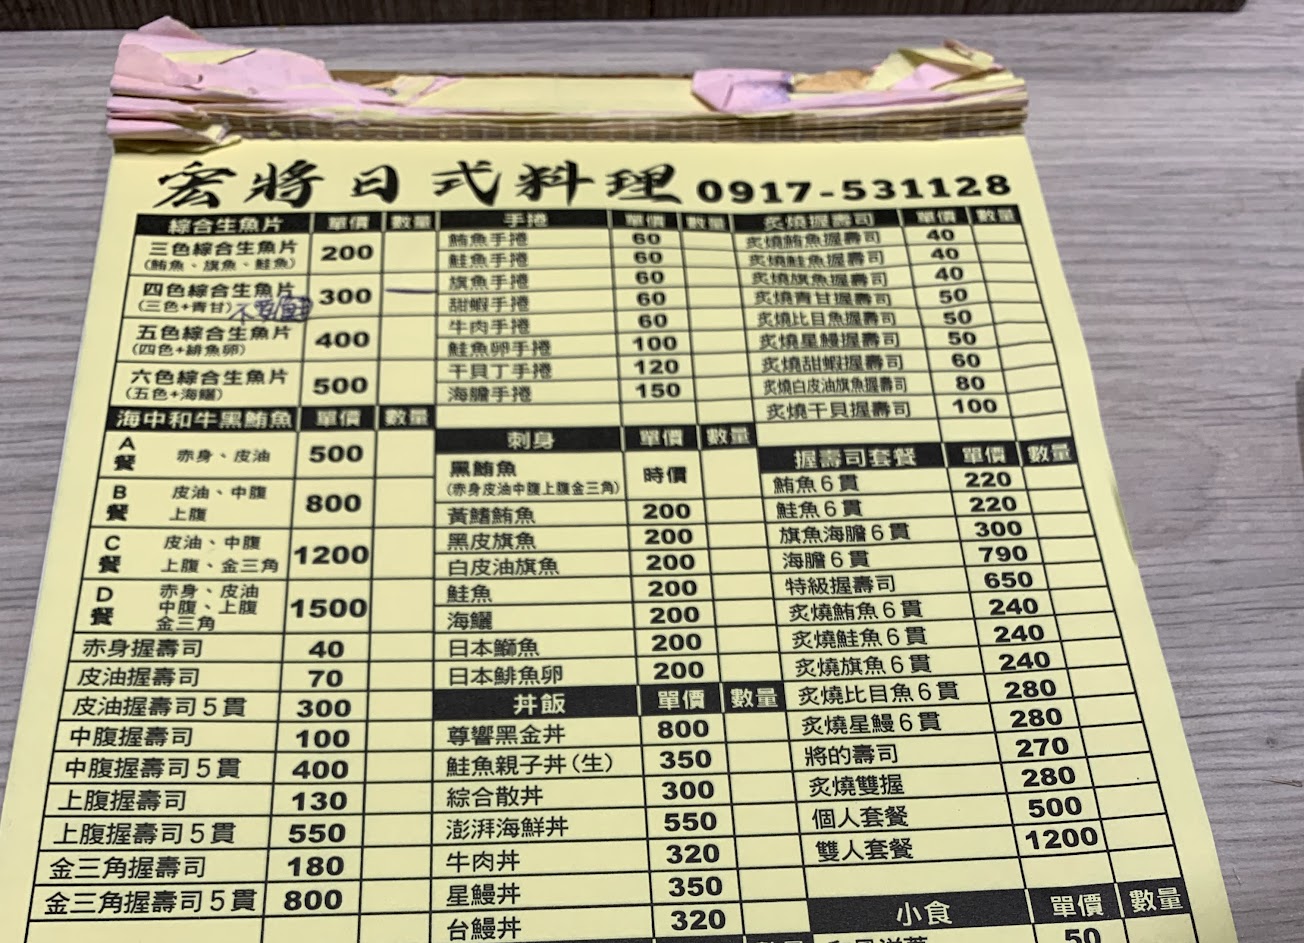 宏將日式料理 0917-531128
綜合生魚片 單價 數量
三色綜合生魚片 200
(鮪魚、旗魚、鮭魚)
四色綜合生魚片 300
(三色+青甘)
五色綜合生魚片 400
(四色+緋魚卵)
六色綜合生魚片 500
(五色+海鱺)
海中和牛黑鮪魚 單價 數量
A餐 赤身、皮油 500
B餐 皮油、中腹 800
上腹
C餐 皮油、中腹 1200
上腹、金三角
D餐 赤身、皮油 1500
中腹、上腹
金三角
赤身握壽司 40
皮油握壽司 70
皮油握壽司5貫 300
中腹握壽司 100
中腹握壽司5貫 400
上腹握壽司 130
上腹握壽司5貫 550
金三角握壽司 180
金三角握壽司5貫 800
手捲 單價 數量
鮪魚手捲 60
鮭魚手捲 60
旗魚手捲 60
甜蝦手捲 60
牛肉手捲 60
鮭魚卵手捲 100
干貝丁手捲 120
海膽手捲 150
刺身 單價 數量
黑鮪魚 時價
(赤身皮油中腹上腹金三角)
黃鰭鮪魚 200
黑皮旗魚 200
白皮油旗魚 200
鮭魚 200
海鱺 200
日本鰤魚 200
日本鯡魚卵 200
丼飯 單價 數量
尊響黑金丼 800
鮭魚親子丼(生) 350
綜合散丼 300
澎湃海鮮丼 550
牛肉丼 320
星鰻丼 350
台鰻丼 320
炙燒握壽司 單價 數量
炙燒鮪魚握壽司 40
炙燒鮭魚握壽司 40
炙燒旗魚握壽司 40
炙燒青甘握壽司 50
炙燒比目魚握壽司 50
炙燒星鰻握壽司 50
炙燒甜蝦握壽司 60
炙燒白皮油旗魚握壽司 80
炙燒干貝握壽司 100
握壽司套餐 單價 數量
鮪魚6貫 220
鮭魚6貫 220
旗魚海膽6貫 300
海膽6貫 790
特級握壽司 650
炙燒鮪魚6貫 240
炙燒鮭魚6貫 240
炙燒旗魚6貫 240
炙燒比目魚6貫 280
炙燒星鰻6貫 280
將的壽司 270
炙燒雙握 280
個人套餐 500
雙人套餐 1200
小食 單價 數量
50